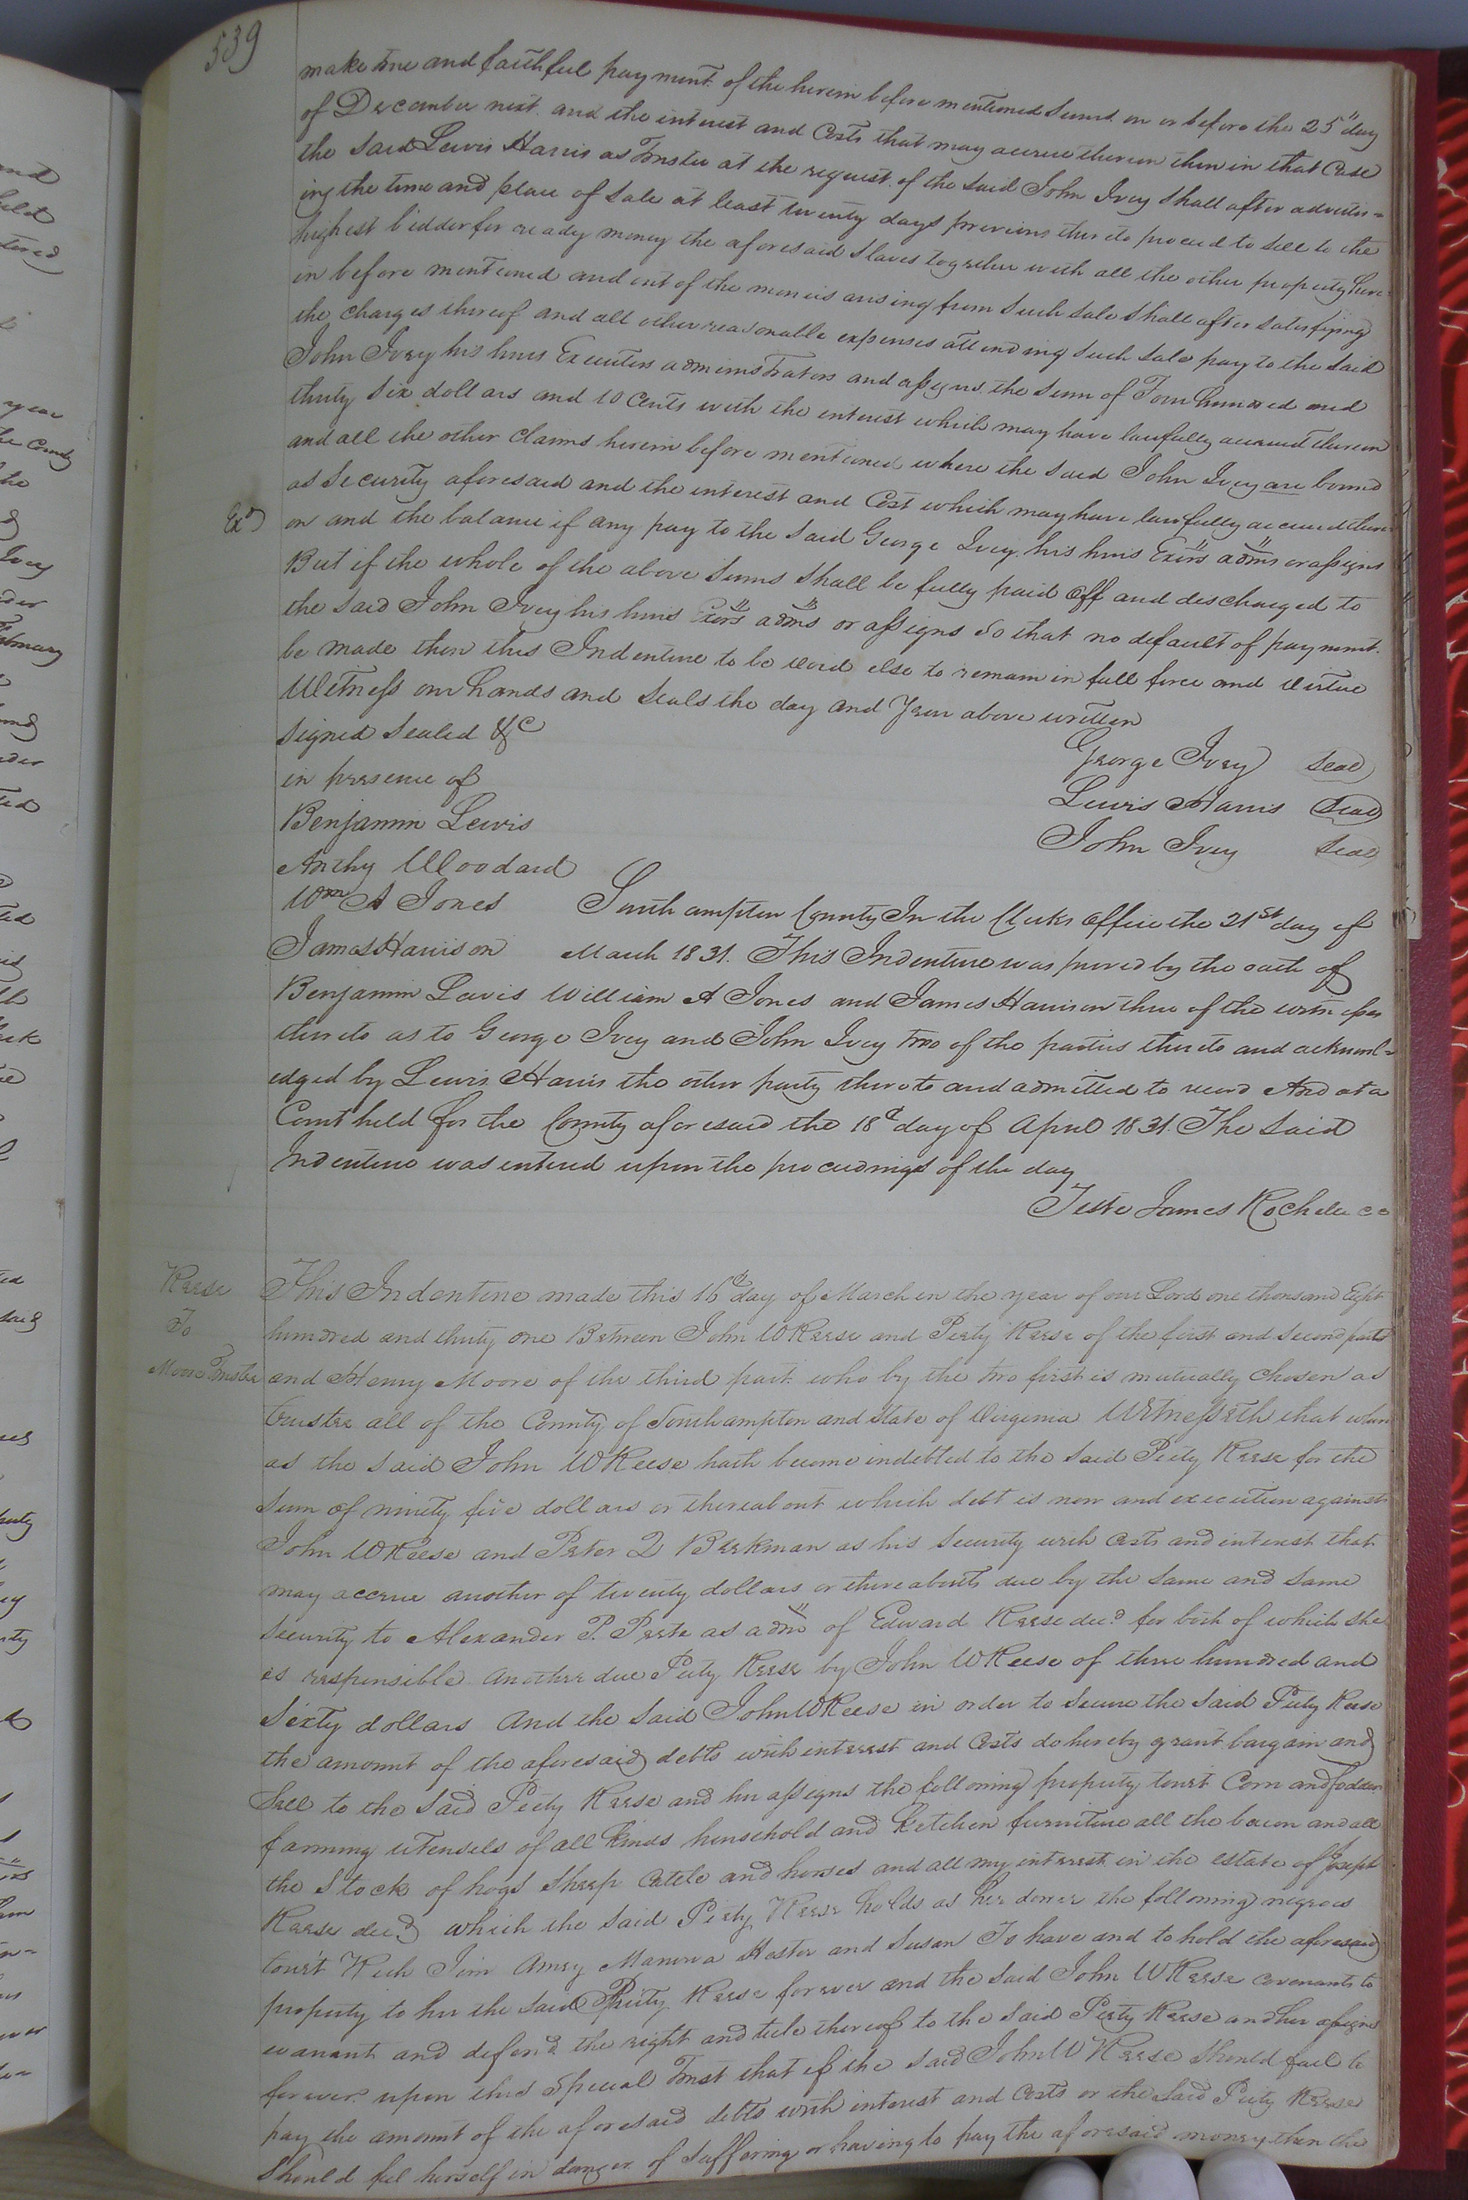 539
make true and faithful payment of the herein before mentioned sums on or before the 25th day
of December next and the interest and Costs that may accrue thereon then in that Case
the said Lewis Harris as Trustee at the request of the said John Ivey shall after advertis=
ing the time and place of sale at least twenty days previous thereto proceed to sell to the
highest bidder for ready money the aforesaid slaves together with all the other property here
in before mentioned and out of the monies arising from such sale shall after satisfying
the charges thereof and all other reasonable expenses attending such sale pay to the said
John Ivey his heirs Executors administrators and assigns the sum of Four hundred and
thirty six dollars and 10 Cents with the interest which may have lawfully accrued thereon
and all the other claims herein before mentioned where the said John Ivey are bound
as security aforesaid and the interest and Cost which may have lawfully accrued there
Exd on and the balance if any pay to the said George Ivey his heirs Exors adms or assigns
But if the whole of the above sums shall be fully paid off and discharged to
the said John Ivey his heirs Exors adms or assigns so that no default of payment
be made then this Indenture to be void else to remain in full force and virtue
Witness our hands and seals the day and Year above written
signed sealed &c
George Ivey seal
in presence of
Lewis Harris seal
Benjamin Lewis
John Ivey seal
Archy Woodard
Wm A Jones Southampton County In the Clerks office the 21st day of
James Harrison March 1831. This Indenture was proved by the oath of
Benjamin Lewis William A Jones and James Harrison three of the witnesses
thereto as to George Ivey and John Ivey two of the parties thereto and acknowl=
edged by Lewis Harris the other party thereto and admitted to record And at a
Court held for the County aforesaid the 18th day of April 1831. The said
Indenture was entered upon the proceedings of the day
Teste James Rochelle cc
Reese
To
Moore Trustee
This Indenture made this 16th day of March in the year of our Lord one thousand Eight
hundred and thirty one Between John W Reese and Piety Reese of the first and second parts
and Henry Moore of the third part who by the two first is mutually chosen as
trustee all of the County of Southampton and State of Virginia Witnesseth that where
as the said John W Reese hath become indebted to the said Piety Reese for the
sum of ninety five dollars or thereabout which debt is now and execution against
John W Reese and Peter Q Beekman as his security with costs and interest that
may accrue another of twenty dollars or thereabouts due by the same and same
security to Alexander P. Peete as adm of Edward Reese decd for both of which she
is responsible another due Piety Reese by John W Reese of three hundred and
sixty dollars And the said John W Reese in order to secure the said Piety Reese
the amount of the aforesaid debts with interest and Costs do hereby grant bargain and
sell to the said Piety Reese and her assigns the following property towit Corn and fodder
farming utensils of all kinds household and Kitchen furniture all the bacon and all
the Stock of hogs sheep Catele and horses and all my interest in the estate of Joseph
Reese decd which the said Piety Reese holds as her dower the following negroes
towit Jim Amey Manerva Hester and Susan To have and to hold the aforesaid
property to her the said Piety Reese forever and the said John W Reese covenants to
warrant and defend the right and title thereof to the said Piety Reese and her assigns
forever upon this special Trust that if the said John W Reese should fail to
pay the amount of the aforesaid debts with interest and Costs or the said Piety Reese
should feel herself in danger of suffering or having to pay the aforesaid money then the